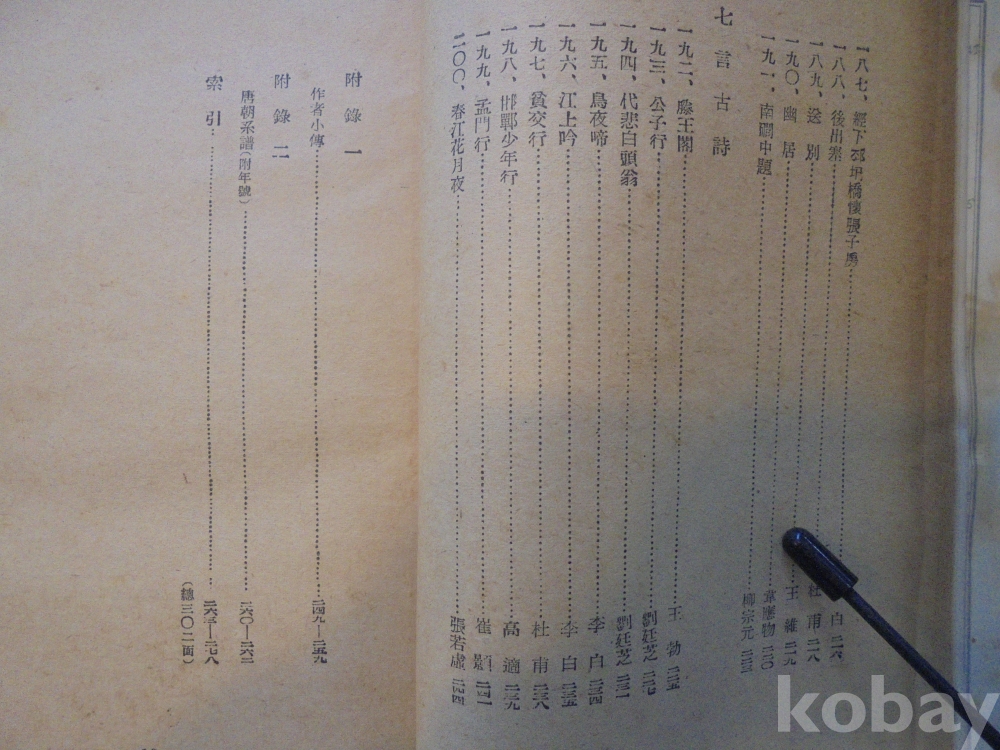 一八七、經下邳圯橋懷張子房 白 二一六
一八八、後出塞 杜甫 二一八
一八九、送別 王維 二一九
一九〇、幽居 韋應物 二二〇
一九一、南澗中題 柳宗元
七言古詩
一九二、滕王閣 王勃 二二五
一九三、公子行 劉廷芝 二二七
一九四、代悲白頭翁 劉廷芝 二三一
一九五、烏夜啼 李白 二三四
一九六、江上吟 李白 二三五
一九七、貧交行 杜甫 二三八
一九八、邯鄲少年行 高適 二三九
一九九、孟門行 崔顥 二四一
二〇〇、春江花月夜 張若虛 二四四
附錄一
作者小傳 二四九—二五九
附錄二
唐朝系譜(附年號) 二六〇—二六二
索引 二六三—二七八
(總三〇二面)
kobay